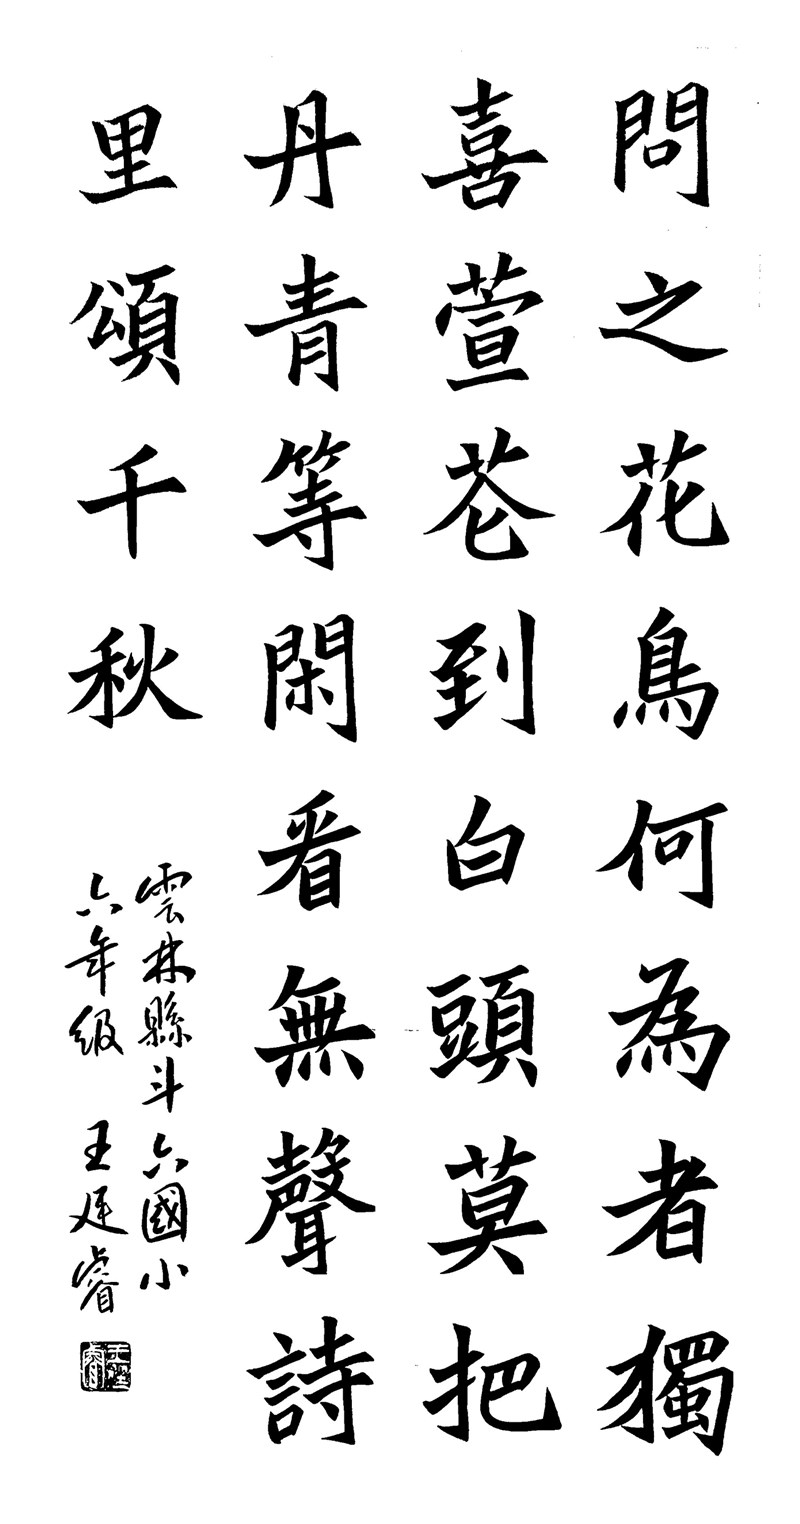 問之花鳥何為者獨
喜萱花到白頭莫把
丹青等閑看無聲詩
里頌千秋
雲林縣斗六國小
六年級 王廷睿